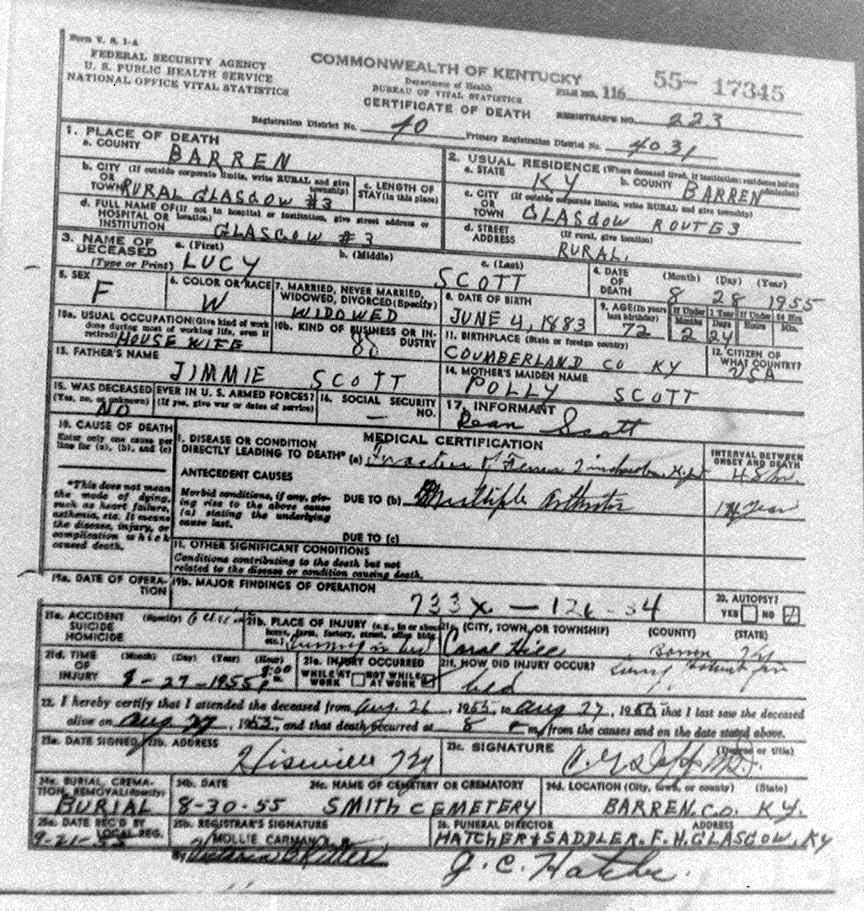 Form V. S. 1-A
FEDERAL SECURITY AGENCY
U. S. PUBLIC HEALTH SERVICE
NATIONAL OFFICE VITAL STATISTICS
COMMONWEALTH OF KENTUCKY
Department of Health
BUREAU OF VITAL STATISTICS
CERTIFICATE OF DEATH
FILE NO. 116 55- 17345
REGISTRAR'S NO. 223
Registration District No. 40 Primary Registration District No. 4031
1. PLACE OF DEATH
a. COUNTY BARREN
b. CITY (If outside corporate limits, write RURAL and give township)
OR TOWN RURAL GLASGOW #3
c. LENGTH OF STAY (in this place)
d. FULL NAME OF (If not in hospital or institution, give street address or location)
HOSPITAL OR INSTITUTION GLASGOW #3
2. USUAL RESIDENCE (Where deceased lived, if institution: residence before admission)
a. STATE KY b. COUNTY BARREN
c. CITY (If outside corporate limits, write RURAL and give township)
OR TOWN GLASGOW ROUTE 3
d. STREET ADDRESS (If rural, give location)
RURAL.
3. NAME OF DECEASED
(Type or Print)
a. (First) b. (Middle) c. (Last)
LUCY SCOTT
4. DATE OF DEATH (Month) (Day) (Year)
8 28 1955
5. SEX
F
6. COLOR OR RACE
W
7. MARRIED, NEVER MARRIED, WIDOWED, DIVORCED (Specify)
WIDOWED
8. DATE OF BIRTH
JUNE 4, 1883
9. AGE (In years last birthday)
72
If Under 1 Year Months Days
2 24
If Under 24 Hrs. Hours Min.
10a. USUAL OCCUPATION (Give kind of work done during most of working life, even if retired)
HOUSE WIFE
10b. KIND OF BUSINESS OR INDUSTRY
11. BIRTHPLACE (State or foreign country)
COUMBERLAND CO KY
12. CITIZEN OF WHAT COUNTRY?
USA
13. FATHER'S NAME
JIMMIE SCOTT
14. MOTHER'S MAIDEN NAME
POLLY SCOTT
15. WAS DECEASED EVER IN U. S. ARMED FORCES?
(Yes, no, or unknown) (If yes, give war or dates of service)
NO
16. SOCIAL SECURITY NO.
—
17. INFORMANT
Dean Scott
18. CAUSE OF DEATH
Enter only one cause per line for (a), (b), and (c)
*This does not mean the mode of dying, such as heart failure, asthenia, etc. It means the disease, injury, or complication which caused death.
MEDICAL CERTIFICATION
I. DISEASE OR CONDITION DIRECTLY LEADING TO DEATH* (a)
INTERVAL BETWEEN ONSET AND DEATH
48 hr.
ANTECEDENT CAUSES
Morbid conditions, if any, giving rise to the above cause (a) stating the underlying cause last.
DUE TO (b) Multiple
DUE TO (c)
II. OTHER SIGNIFICANT CONDITIONS
Conditions contributing to the death but not related to the disease or condition causing death.
19a. DATE OF OPERATION
19b. MAJOR FINDINGS OF OPERATION
733X — 126 - 34
20. AUTOPSY?
YES NO
21a. ACCIDENT SUICIDE HOMICIDE (Specify)
21b. PLACE OF INJURY (e.g., in or about home, farm, factory, street, office bldg. etc.)
21c. (CITY, TOWN, OR TOWNSHIP) (COUNTY) (STATE)
Barren Ky
21d. TIME OF INJURY (Month) (Day) (Year) (Hour)
8-27-1955 8:00
21e. INJURY OCCURRED
WHILE AT WORK NOT WHILE AT WORK
21f. HOW DID INJURY OCCUR?
bed
22. I hereby certify that I attended the deceased from Aug. 26, 1955, to Aug 27, 1955 that I last saw the deceased
alive on Aug 27, 1955, and that death occurred at 8 m., from the causes and on the date stated above.
23a. DATE SIGNED
23b. ADDRESS
Hiseville Ky
23c. SIGNATURE (Degree or title)
24a. BURIAL, CREMATION, REMOVAL (Specify)
BURIAL
24b. DATE
8-30-55
24c. NAME OF CEMETERY OR CREMATORY
SMITH CEMETERY
24d. LOCATION (City, town, or county) (State)
BARREN.CO. KY.
25a. DATE REC'D BY LOCAL REG.
9-21-55
25b. REGISTRAR'S SIGNATURE
MOLLIE CARMAN
By
26. FUNERAL DIRECTOR ADDRESS
HATCHER & SADDLER. F. H. GLASGOW, KY
J. C. Hatcher